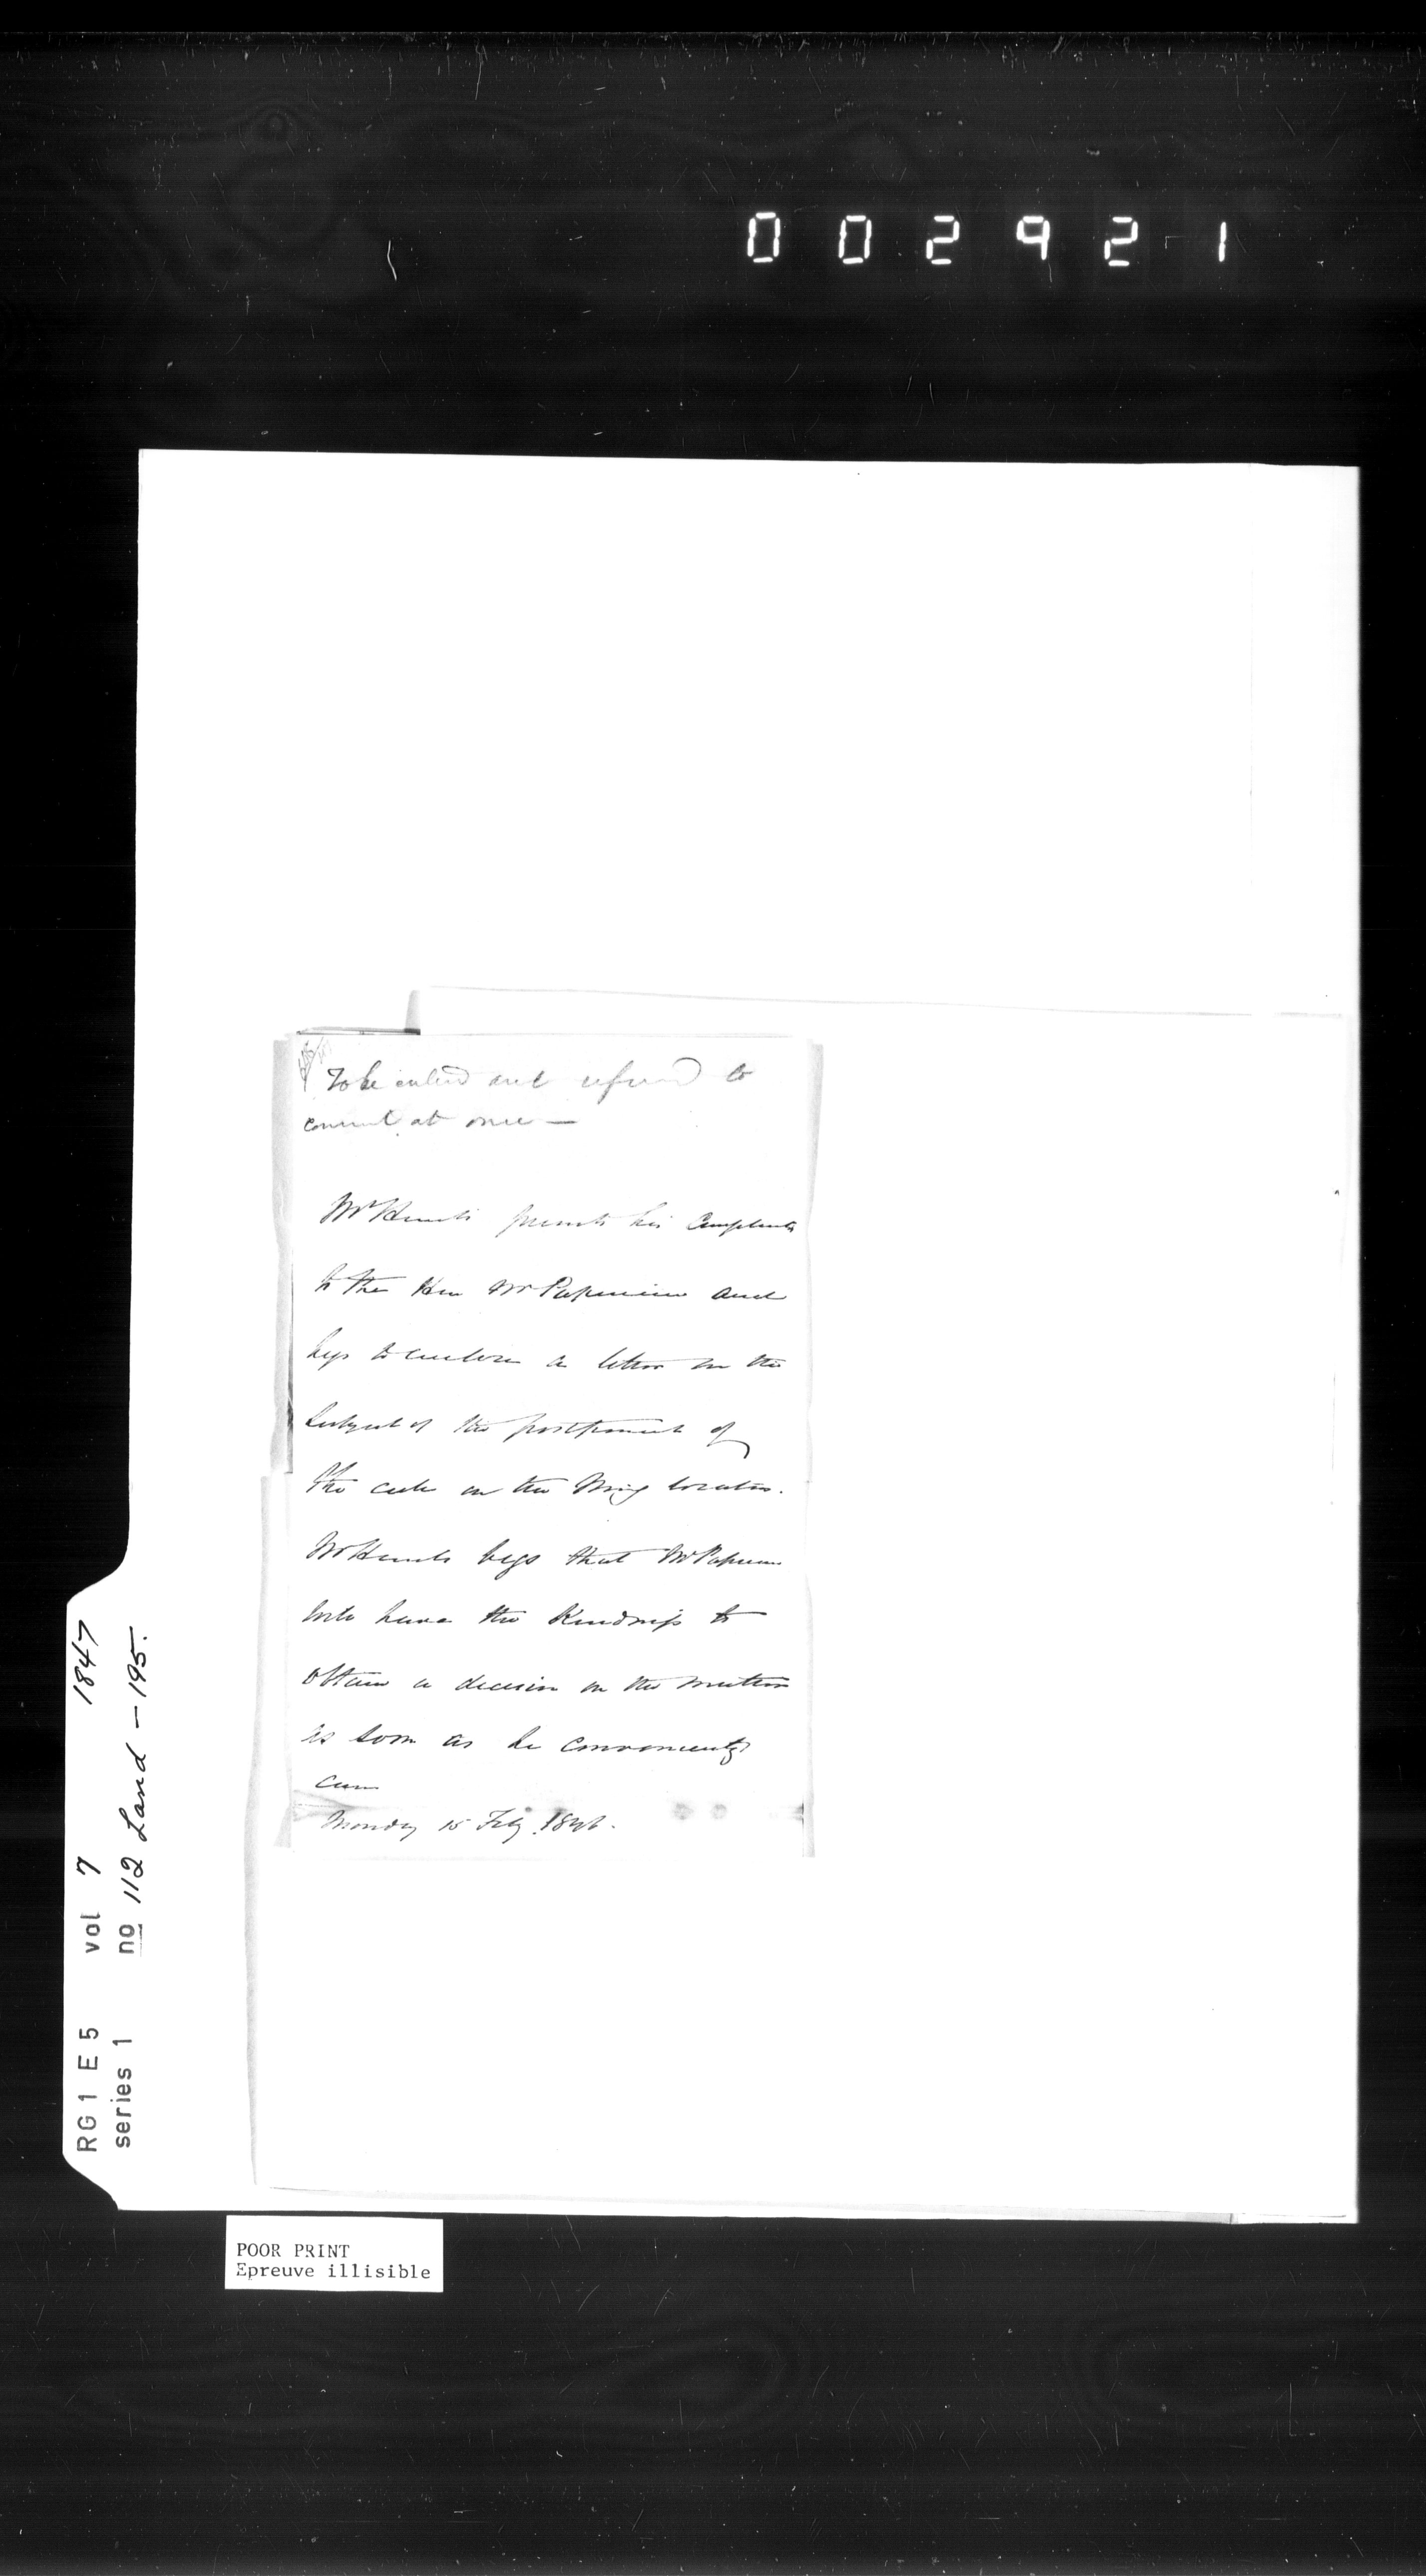 002921
To be entered and referred to
council at once —
Mr presents his Compliments
to the Hon Mr Papineau and
begs to enclose a letter on the
subject of the postponement of
the on the Mining location.
Mr begs that Mr Papineau
will have the kindness to
obtain a decision on the matter
as soon as he conveniently
can
Monday 15 Feby
RG1 E5 vol 7 1847
series 1 no 112 Land - 195.
POOR PRINT
Epreuve illisible